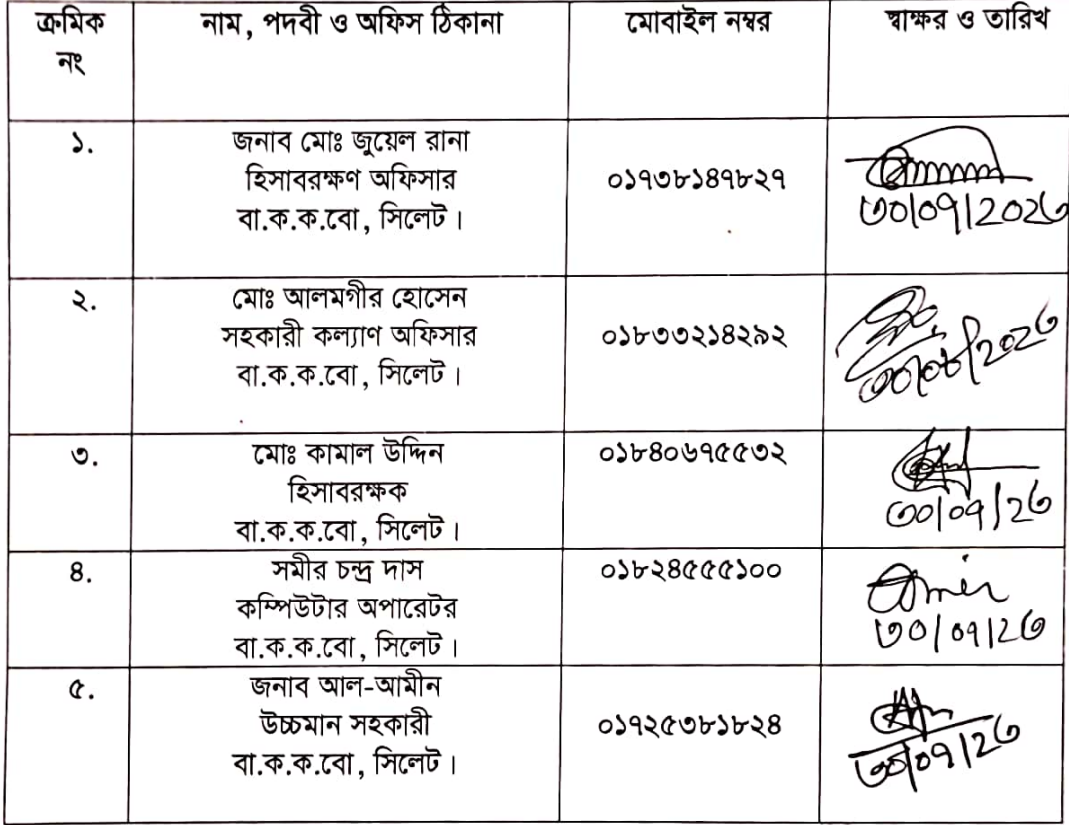 ক্রমিক নং
নাম, পদবী ও অফিস ঠিকানা
মোবাইল নম্বর
স্বাক্ষর ও তারিখ
১.
জনাব মোঃ জুয়েল রানা
হিসাবরক্ষণ অফিসার
বা.ক.ক.বো, সিলেট।
০১৭৩৮১৪৭৮২৭
৩০/০৭/২০২৩
২.
মোঃ আলমগীর হোসেন
সহকারী কল্যাণ অফিসার
বা.ক.ক.বো, সিলেট।
০১৮৩৩২১৪২৯২
৩.
মোঃ কামাল উদ্দিন
হিসাবরক্ষক
বা.ক.ক.বো, সিলেট।
০১৮৪০৬৭৫৫৩২
৩০/০৭/২৩
৪.
সমীর চন্দ্র দাস
কম্পিউটার অপারেটর
বা.ক.ক.বো, সিলেট।
০১৮২৪৫৫৫১০০
৩০/০৭/২৩
৫.
জনাব আল-আমীন
উচ্চমান সহকারী
বা.ক.ক.বো, সিলেট।
০১৭২৫৩৮১৮২৪
৩০/০৭/২৩